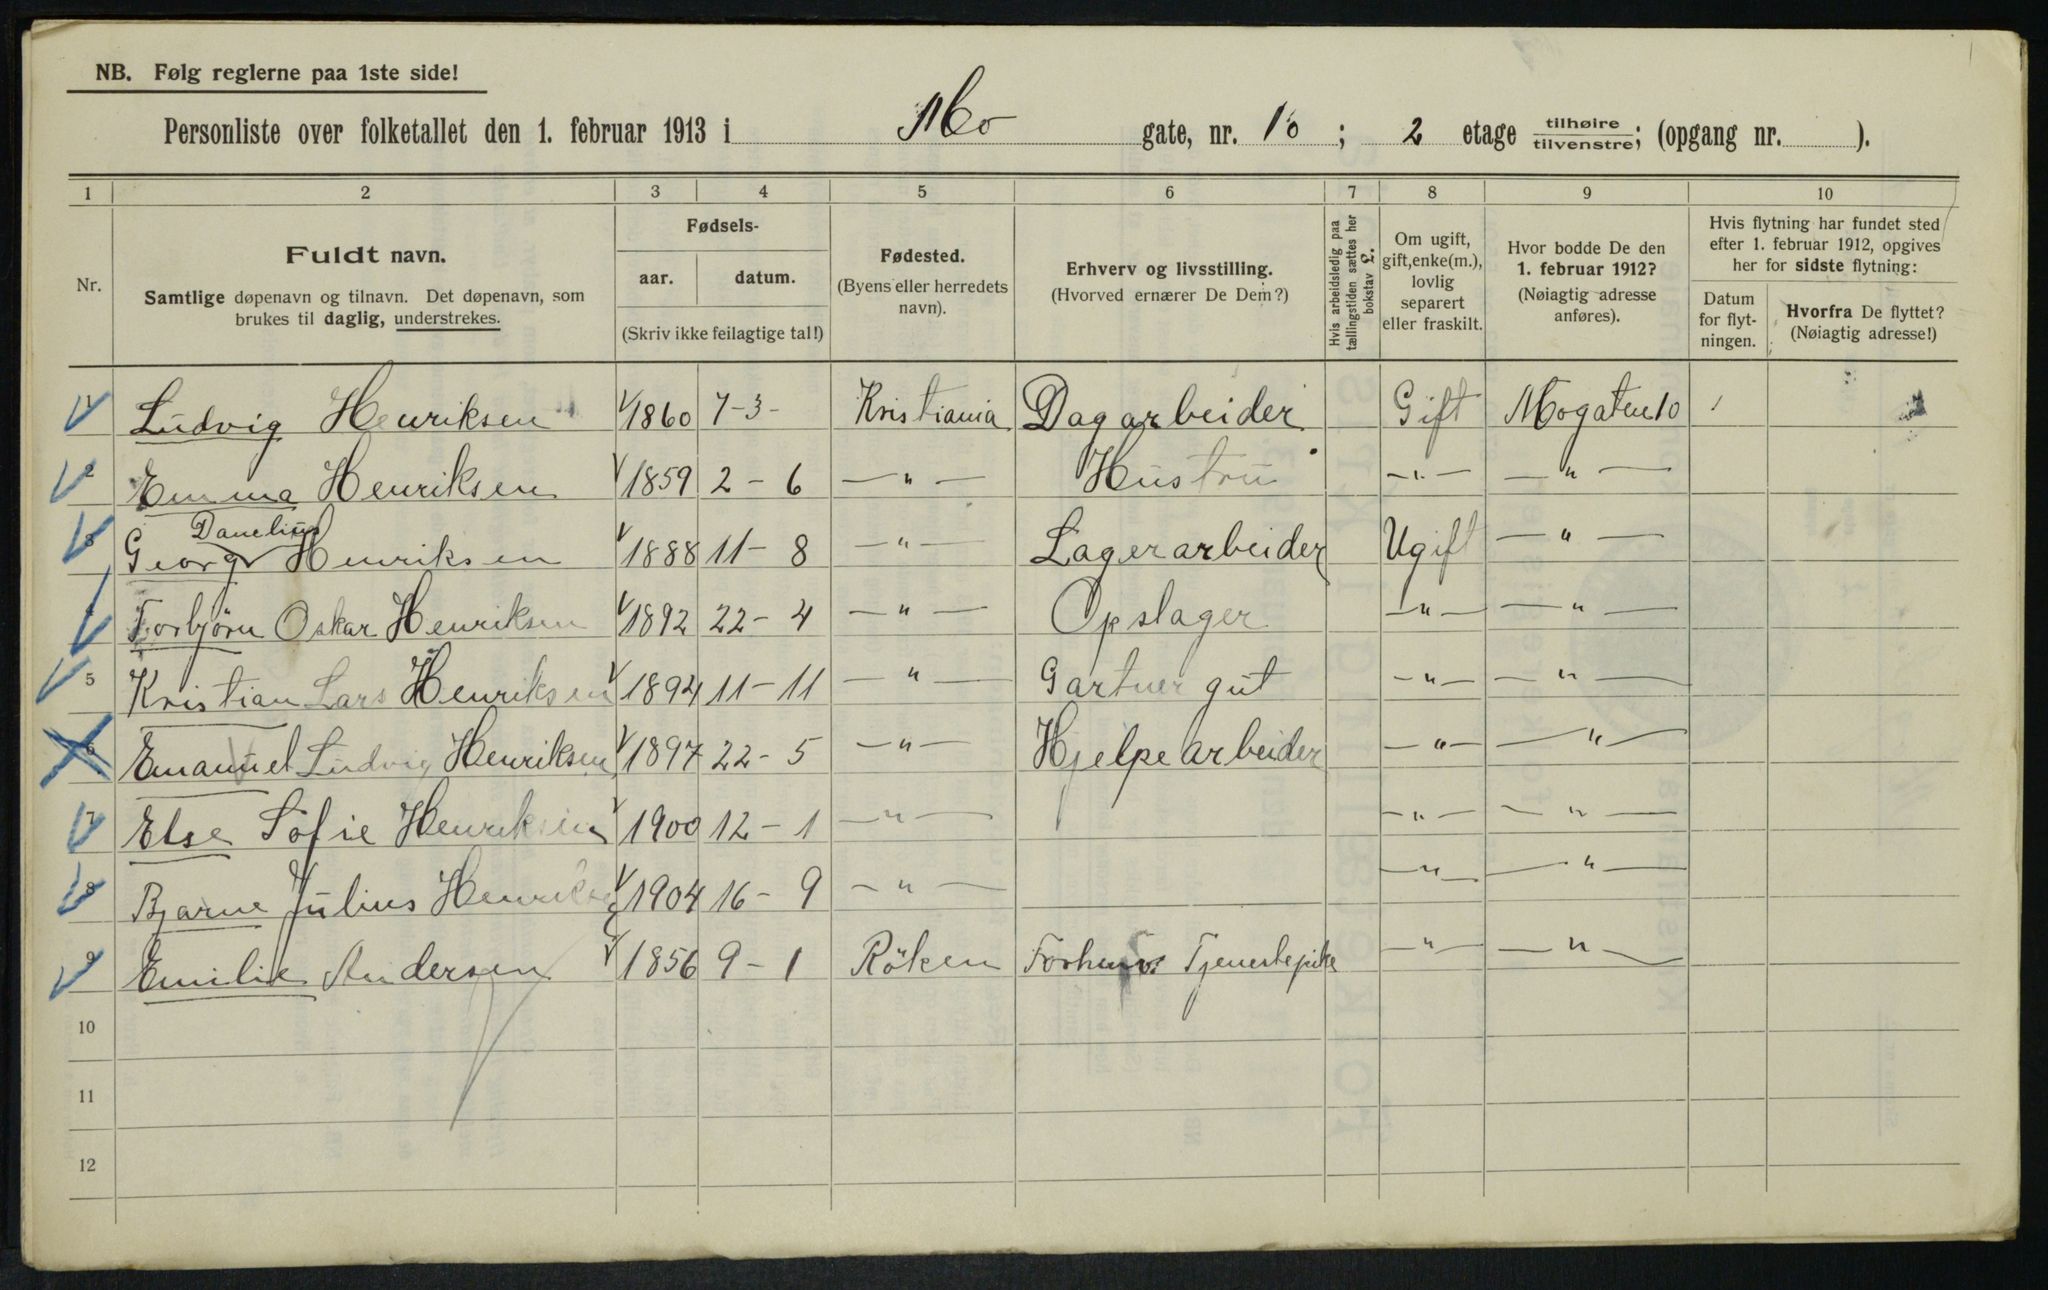 NB. Følg reglerne paa 1ste side!
Personliste over folketallet den 1. februar 1913 i Mo gate, nr. 10; 2 etage tilhøire/tilvenstre; (opgang nr. ).
1 2 3 4 5 6 7 8 9 10
Nr.
Fuldt navn.
Samtlige døpenavn og tilnavn. Det døpenavn, som
brukes til daglig, understrekes.
Fødsels-
aar. datum.
(Skriv ikke feilagtige tal!)
Fødested.
(Byens eller herredets
navn).
Erhverv og livsstilling.
(Hvorved ernærer De Dem?)
Hvis arbeidsledig paa
tællingstiden sættes her
bokstav L.
Om ugift,
gift, enke(m.),
lovlig
separert
eller fraskilt.
Hvor bodde De den
1. februar 1912?
(Nøiagtig adresse
anføres).
Hvis flytning har fundet sted
efter 1. februar 1912, opgives
her for sidste flytning:
Datum
for flyt-
ningen.
Hvorfra De flyttet?
(Nøiagtig adresse!)
1 Ludvig Henriksen 1860 7-3- Kristiania Dagarbeider Gift Mogaten 10
2 Emma Henriksen 1859 2-6 —"— Hustru —"— —"—
Danelius
3 Georg Henriksen 1888 11-8 —"— Lagerarbeider Ugift —"—
4 Torbjörn Oskar Henriksen 1892 22-4 —"— Opslager —"— —"—
5 Kristian Lars Henriksen 1894 11-11 —"— Gartner gut —"— —"—
6 Emanuel Ludvig Henriksen 1897 22-5 —"— Hjelpearbeider —"— —"—
7 Else Sofie Henriksen 1900 12-1 —"— —"— —"—
8 Bjarne Julius Henriksen 1904 16-9 —"— —"— —"—
9 Emilie Andersen 1856 9-1 Röken Forhenv. Tjenestepike —"— —"—
10
11
12